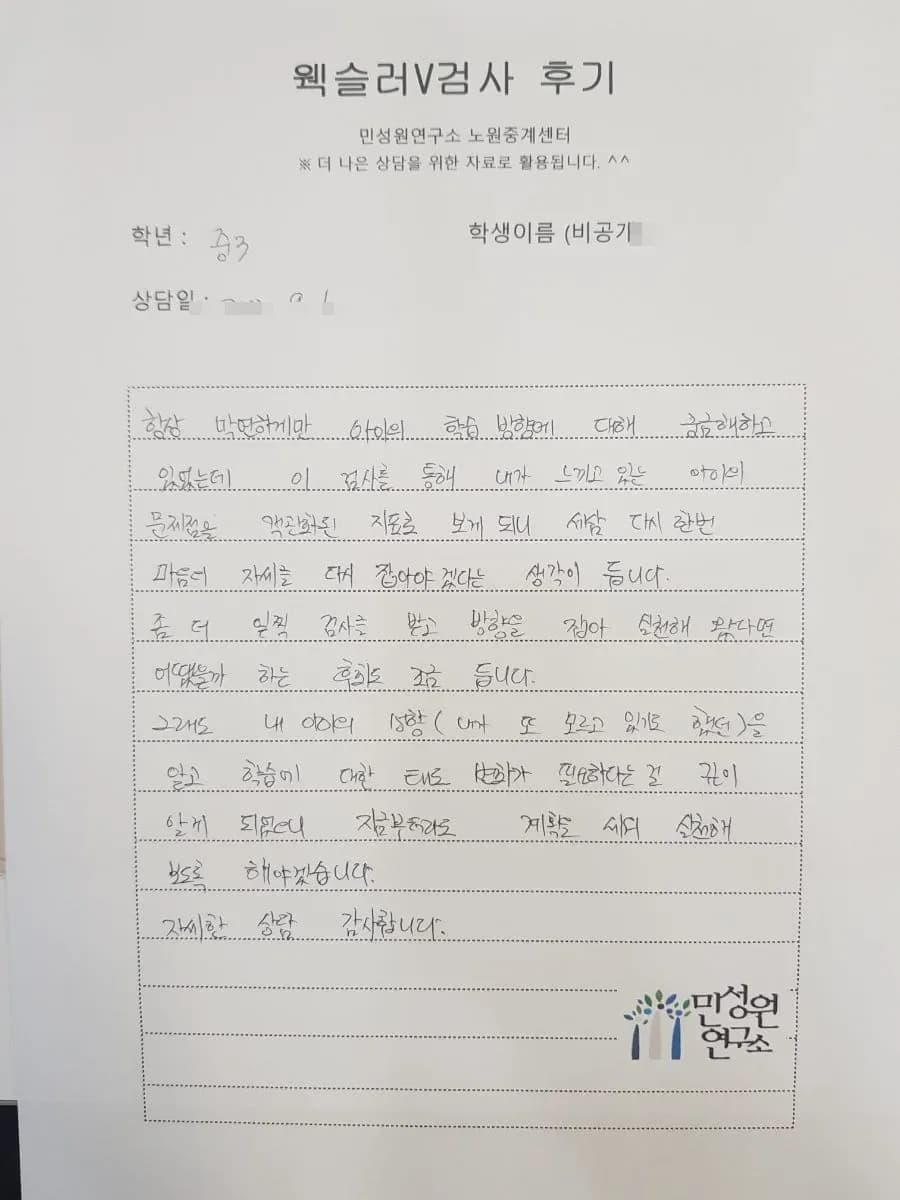 웩슬러V검사 후기
민성원연구소 노원중계센터
※ 더 나은 상담을 위한 자료로 활용됩니다. ^^
학년 : 중3
학생이름 (비공개
상담일 :
항상 막연하게만 아이의 학습 방향에 대해 궁금해하고
있었는데 이 검사를 통해 내가 느끼고 있는 아이의
문제점을 객관화된 지표로 보게 되니 새삼 다시 한번
마음의 자세를 다시 잡아야 겠다는 생각이 듭니다.
좀 더 일찍 검사를 받고 방향을 잡아 실천해 왔다면
어땠을까 하는 후회도 조금 듭니다.
그래도 내 아이의 성향(내가 또 모르고 있기도 했던)을
알고 학습에 대한 태도 변화가 필요하다는 걸 깊이
알게 되었으니 지금부터라도 계획을 세워 실천해
보도록 해야겠습니다.
자세한 상담 감사합니다.
민성원
연구소